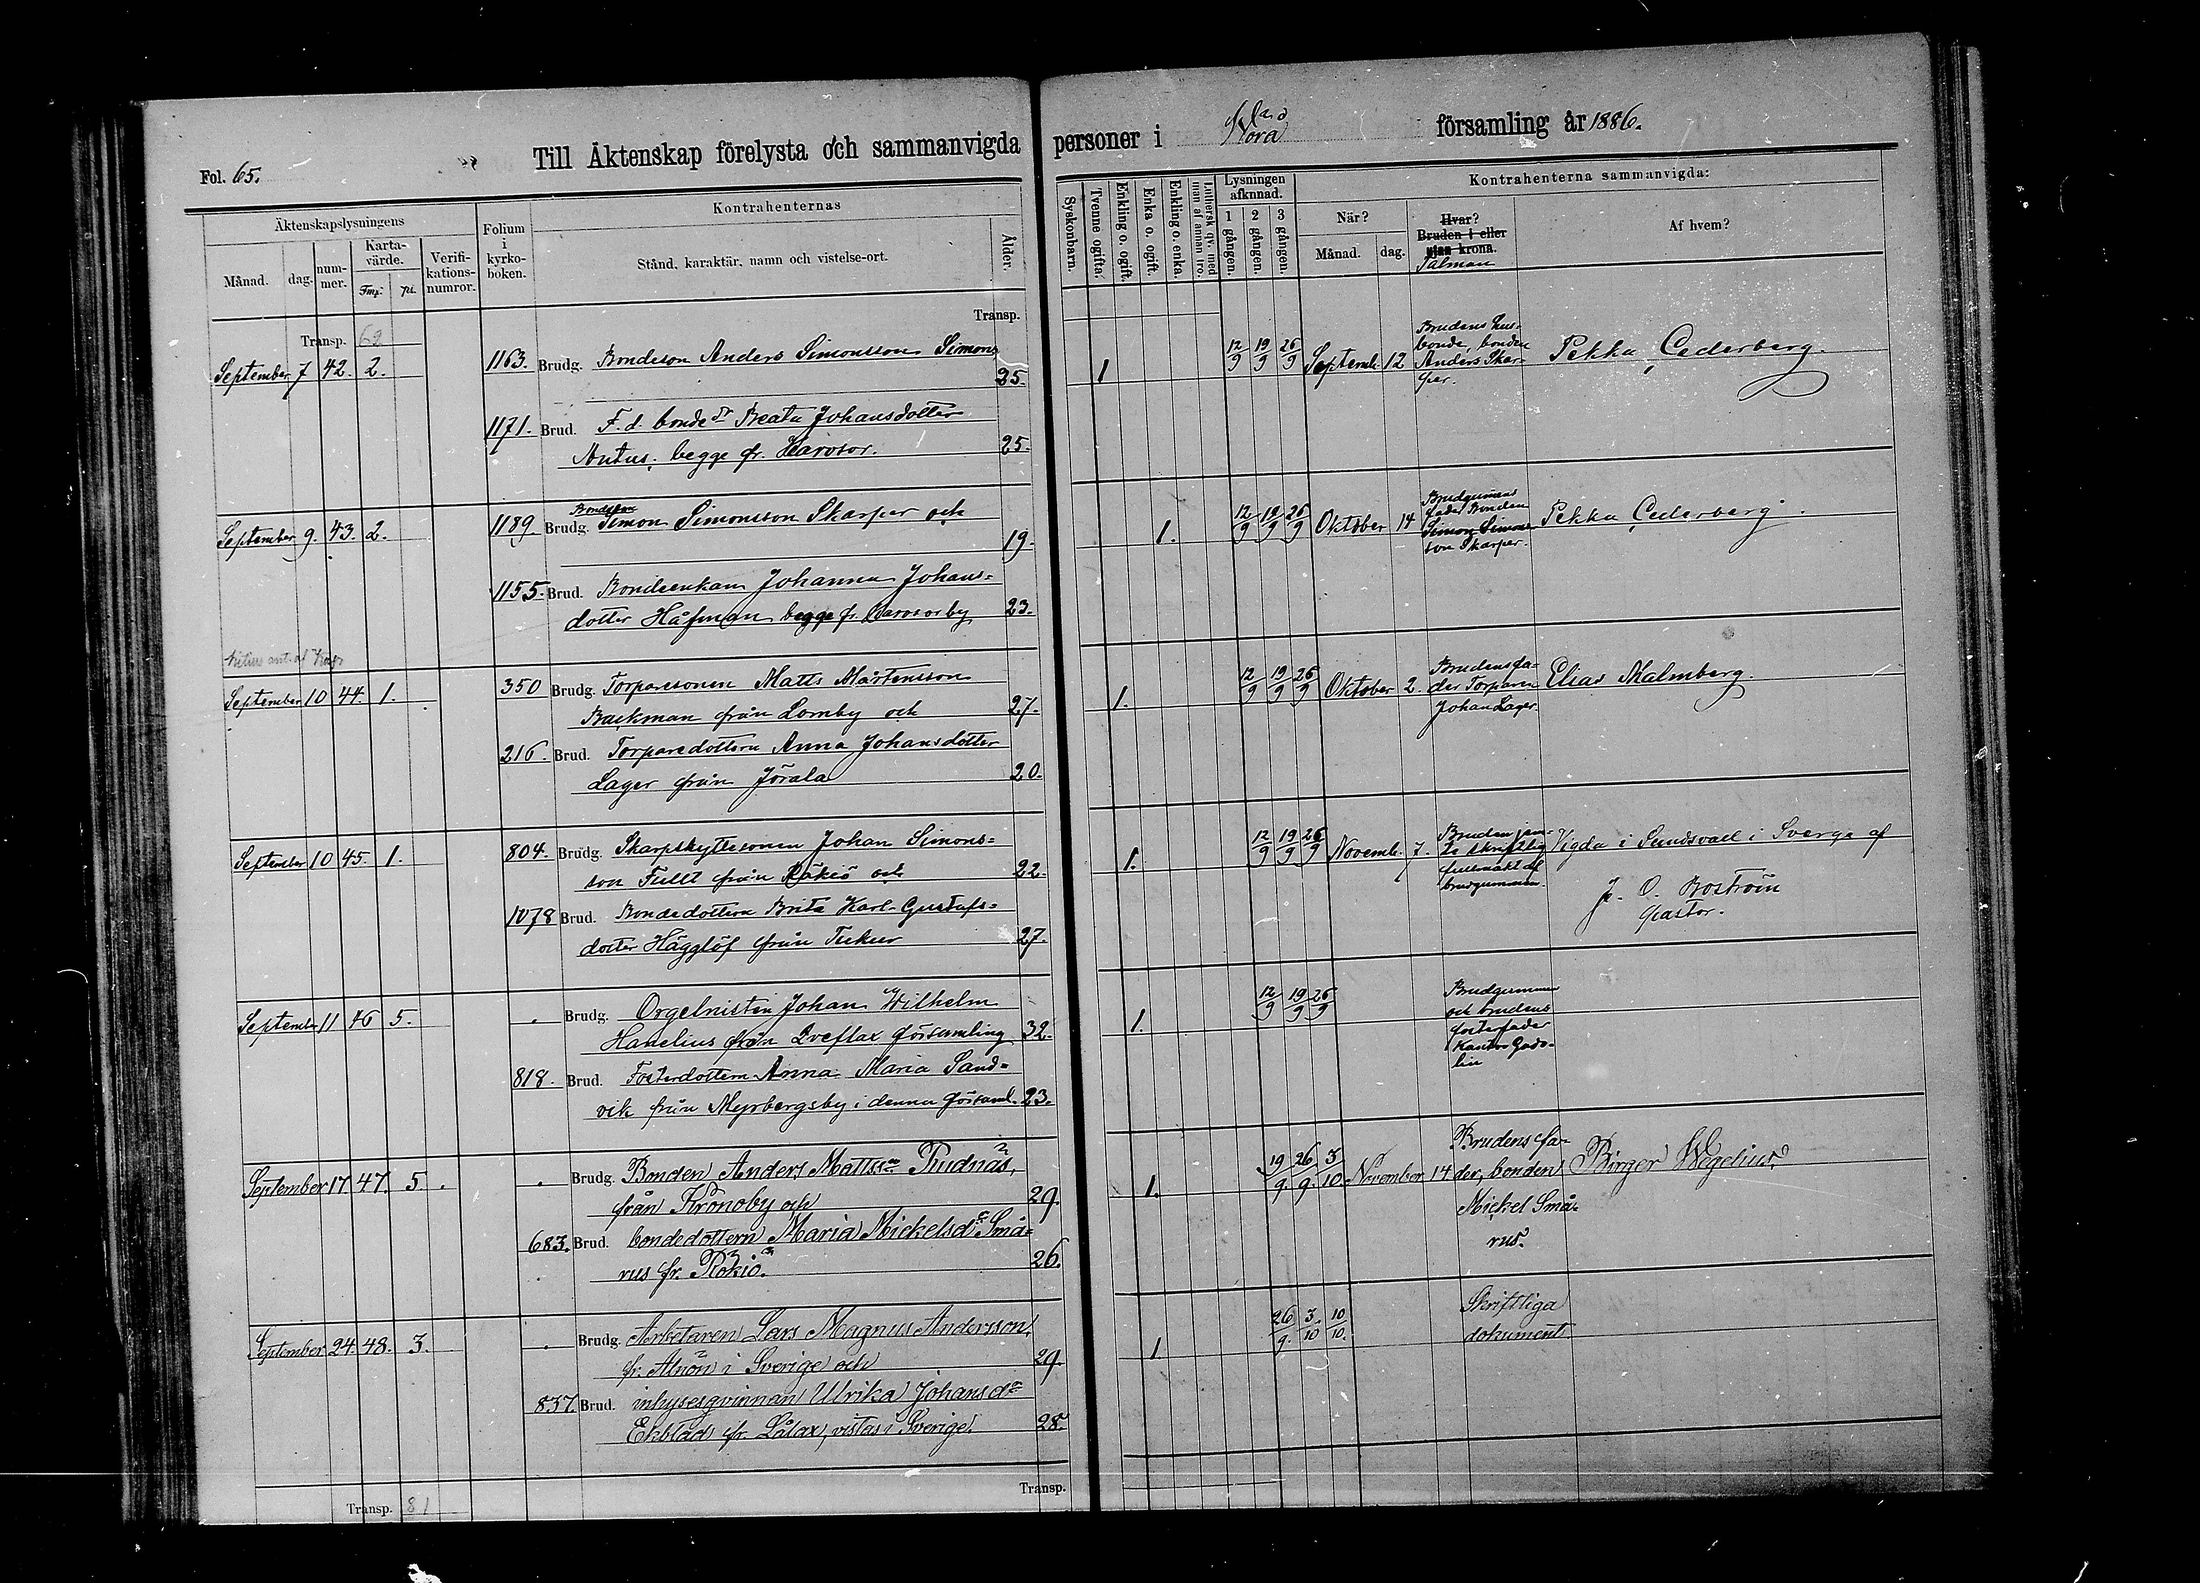 Fol. 65.
Till Äktenskap förelysta och sammanvigda personer i Vörå församling år 1886.
Äktenskapslysningens
Månad. dag. nummer. Kartavärde. Fmk. pi. Verifikationsnumror.
Folium i kyrkoboken.
Kontrahenternas
Stånd, karaktär, namn och vistelse-ort.
Ålder.
Syskonbarn. Tvenne ogifta. Enkling o. ogift. Enka o. ogift. Enkling o. enka. Luthersk qv. med man af annan tro.
Lysningen afknnad.
1 gången. 2 gången. 3 gången.
Kontrahenterna sammanvigda:
När? Månad. dag.
Hvar? Bruden i eller utan krona.
Talman
Af hvem?
Transp.
Transp. 62
September 7 42. 2. 1163. Brudg. Bondeson Anders Simonsson Simons 25.
1171. Brud. F. d. bondedr Beata Johansdotter
Antus, begge fr. Karvsor. 25.
1 12/9 19/9 26/9 Septemb. 12
Brudens hus-
bonde, bonden
Anders Skar-
per.
Pekka Cederberg.
September 9. 43. 2. 1189. Brudg. Bondeson Simon Simonsson Skarper och 19.
1155. Brud. Bondeenkan Johanna Johans-
dotter Håfman begge fr. Karvsorby 23.
1. 12/9 19/9 26/9 Oktober 14
Brudgumens
fader Bonden
Simon Simons-
son Skarper.
Pekka Cederberg.
September 10 44. 1. 350 Brudg. Torparesonen Matts Mårtensson
Backman från Lomby och 27.
216. Brud. Torparedottern Anna Johansdotter
Lager från Jörala 20.
1. 12/9 19/9 26/9 Oktober 2.
Brudens fa-
der Torparen
Johan Lager.
Elias Malmberg.
September 10 45. 1. 804. Brudg. Skarpskyttesonen Johan Simons-
son Fullt från Rökiö och 22.
1078 Brud. Bondedottern Brita Karl-Gustafs-
dotter Hägglöf från Tuckur 27.
1. 12/9 19/9 26/9 Novemb. 7.
Bruden jem-
te skriftlig
fullmakt af
brudgummen.
Vigda i Sundsvall i Sverge af
J. O. Boström
Pastor.
September 11 46 5. Brudg. Orgelnisten Johan Wilhelm
Hanelius från Qveflax församling 32.
818. Brud. Fosterdottern Anna Maria Sand-
vik från Myrbergsby i denna församl. 23.
1. 12/9 19/9 26/9
Brudgummen
och brudens
fosterfader
Kantor Gado-
lin
September 17 47. 5. Brudg. Bonden Anders Mattsson Rudnäs,
från Kronoby och 29.
683. Brud. bondedottern Maria Mickelsdr Små-
rus fr. Rökiö. 26.
1. 19/9. 26/9. 3/10 November 14
Brudens fa-
der, bonden
Mickel Små-
rus.
Birger Wegelius.
September 24. 48. 3. Brudg. Arbetaren Lars Magnus Andersson,
fr. Alnön i Sverige och 29.
837. Brud. inhysesqvinnan Ulrika Johansdr
Ekblad fr. Lålax, vistas i Sverige. 28.
1. 26/9. 3/10 10/10.
Skriftliga
dokument
Transp. 81
Transp.